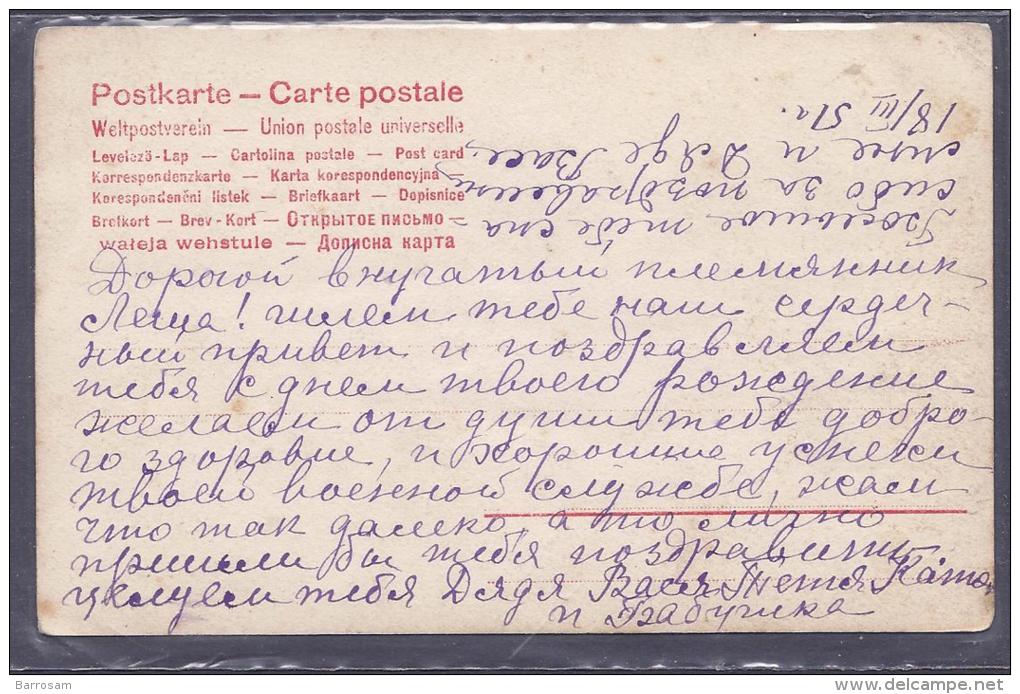 Postkarte — Carte postale
Weltpostverein — Union postale universelle
Levelező-Lap — Cartolina postale — Post card
Korrespondenzkarte — Karta korespondencyjna
Korespondenční listek — Briefkaart — Dopisnice
Brefkort — Brev-Kort — Открытое письмо —
wałeja wehstule — Дописна карта
Дорогой внучатый племянник
Леша! шлем тебе наш сердеч-
ный привет и поздравляем
тебя с днем твоего рождение
желаем от души тебе добро-
го здоровие, и хорошие успехи
твоей военной службе, жаль
что так далеко, а то лично
пришли бы тебя поздравить
целуем тебя Дядя Вася Тетя Катя
и Бабушка
Большое тебе спа-
сибо за поздравлен
и Дяде Васе,
18/III 51г.
Barrosam
delcampe.net